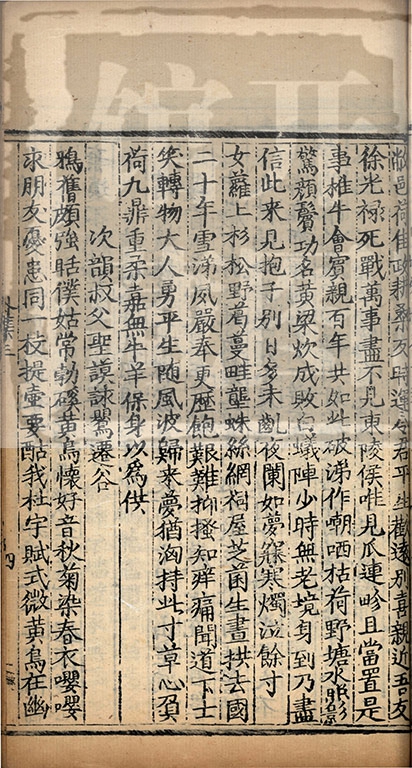 敝邑荷佳政耕桑及時澤君平生歡遠別喜親近吾友
徐光祿死戰萬事盡不見東陵侯唯見瓜連畛且當置是
事椎牛會賓親百年共如此破涕作嘲哂枯荷野塘水
驚顏鬢功名黃粱炊成敗白蟻陣少時無老境身到乃盡
信此来見抱子別日多未齔夜闌如夢寐寒燭泣餘寸
女蘿上杉松野葛蔓畦壟蛛絲網祠屋芝菌生畫拱去國
二十年雪涕夙嚴奉更歷飽艱難抑搔知痒痛聞道下士
笑轉物大人勇平生随風波歸来夢猶洶持此寸草心負
荷九鼎重柔嘉無牛羊保身以為供
次韻叔父聖謨詠鶯遷谷
鴉舊頗強聒僕姑常勃磎黃鳥懷好音秋菊染春衣嚶嚶
求朋友憂患同一枝提壺要酤我杜宇賦式微黃鳥在幽
集三
四